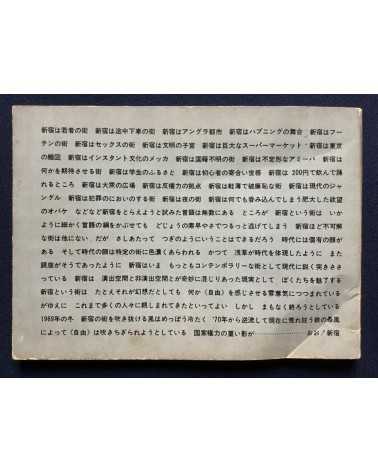 新宿は若者の街　新宿は途中下車の街　新宿はアングラ都市　新宿はハプニングの舞台　新宿はフー
テンの街　新宿はセックスの街　新宿は文明の子宮　新宿は巨大なスーパーマーケット・新宿は東京
の縮図　新宿はインスタント文化のメッカ　新宿は国籍不明の街　新宿は不定形なアミーバ　新宿は
何かを期待させる街　新宿は学生のふるさと　新宿は初心者の寄合い世帯　新宿は 200円で飲んで踊
れるところ　新宿は大衆の広場　新宿は反権力の拠点　新宿は軽薄で破廉恥な街　新宿は現代のジャ
ングル　新宿は犯罪のにおいのする街　新宿は夜の街　新宿は何でも呑み込んでしまう肥大した欲望
のオバケ　などなど新宿をとらえようと試みた言語は無数にある　ところが　新宿という街は　いか
ように細かく言語の網をかぶせても　どじょうの素早やさでつるっと逃げてしまう　新宿ほど不可解
な街は他にない　だが　さしあたって　つぎのようにいうことはできるだろう　時代には個有の顔が
ある　そして時代の顔は特定の街に色濃くあらわれる　かつて　浅草が時代を体現したように　また
銀座がそうであったように　新宿はいま　もっともコンテンポラリーな街として現代に鋭く突きささ
っている　新宿は　演出空間と非演出空間とが奇妙に混じりあった現実として　ぼくたちを魅了する
新宿という街は　たとえそれが幻想だとしても　何か《自由》を感じさせる雰囲気につつまれている
がゆえに　これまで多くの人々に親しまれてきたといってよい　しかし　まもなく終ろうとしている
1969年の冬　新宿の街を吹き抜ける風はめっぽう冷たく　'70年から逆流して現在に荒れ狂う鉄の暴風
によって《自由》は吹きちぎられようとしている　国家権力の重い影が――――おお！新宿